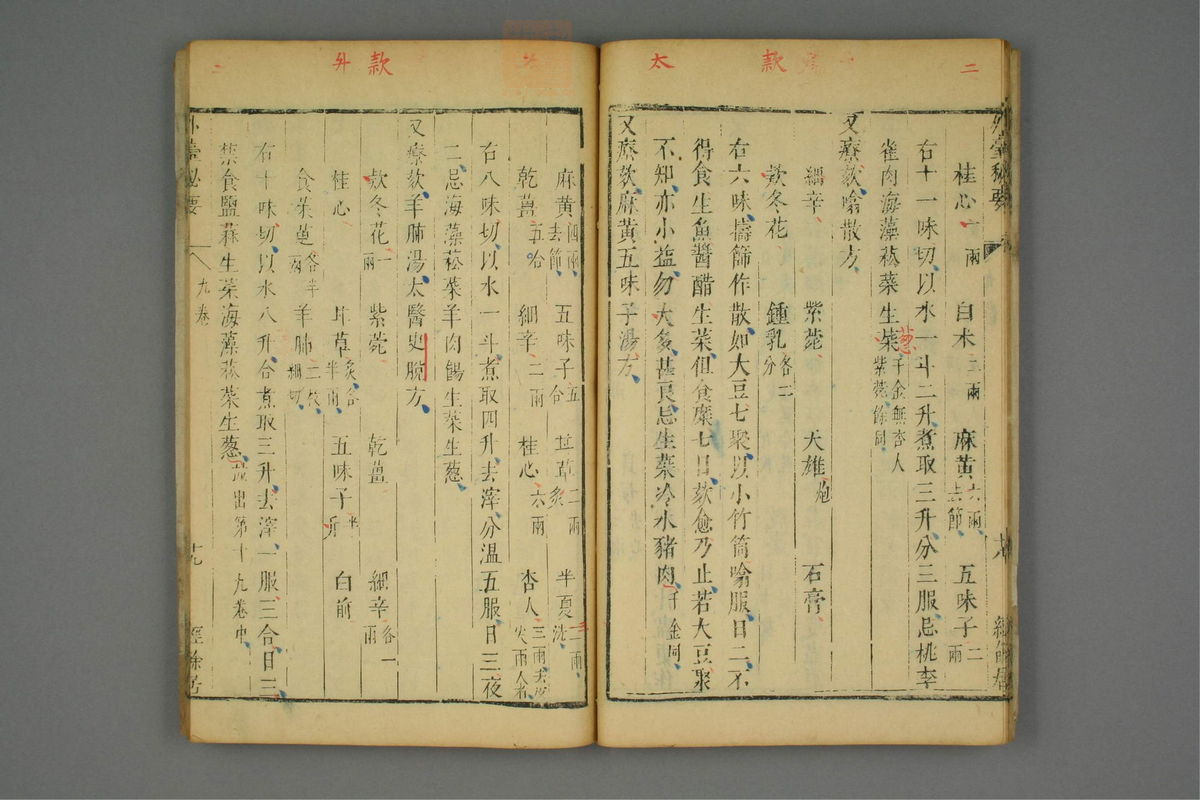 二
款
太
外臺秘要
桂心一兩 白朮三兩 麻黃六兩去節 五味子二兩
右十一味切以水一斗二升煮取三升分三服忌桃李
雀肉海藻菘菜生葱千金無杏人紫菀餘同
又療欬噏散方
細辛 紫菀 天雄炮 石膏
款冬花 鍾乳各二分
右六味擣篩作散如大豆七聚以小竹筒噏服日二不
得食生魚醬醋生菜但食糜七日欬愈乃止若大豆聚
不知亦小益勿大多甚良忌生菜冷水豬肉千金同
又療欬麻黃五味子湯方
款
外
二
麻黃四兩去節 五味子五合 甘草二兩炙 半夏二兩洗
乾薑五合 細辛二兩 桂心六兩 杏人三兩去皮尖兩人者
右八味切以水一斗煮取四升去滓分溫五服日三夜
二忌海藻菘菜羊肉餳生菜生葱
又療欬羊肺湯太醫史脫方
款冬花一兩 紫菀 乾薑 細辛各一兩
桂心 甘草炙各半兩 五味子半升 白前
食茱萸各半兩 羊肺二枚細切
右十味切以水八升合煮取三升去滓一服三合日三
禁食鹽蒜生菜海藻菘菜生葱並出第十九卷中
外臺秘要
九卷
十九
經餘居